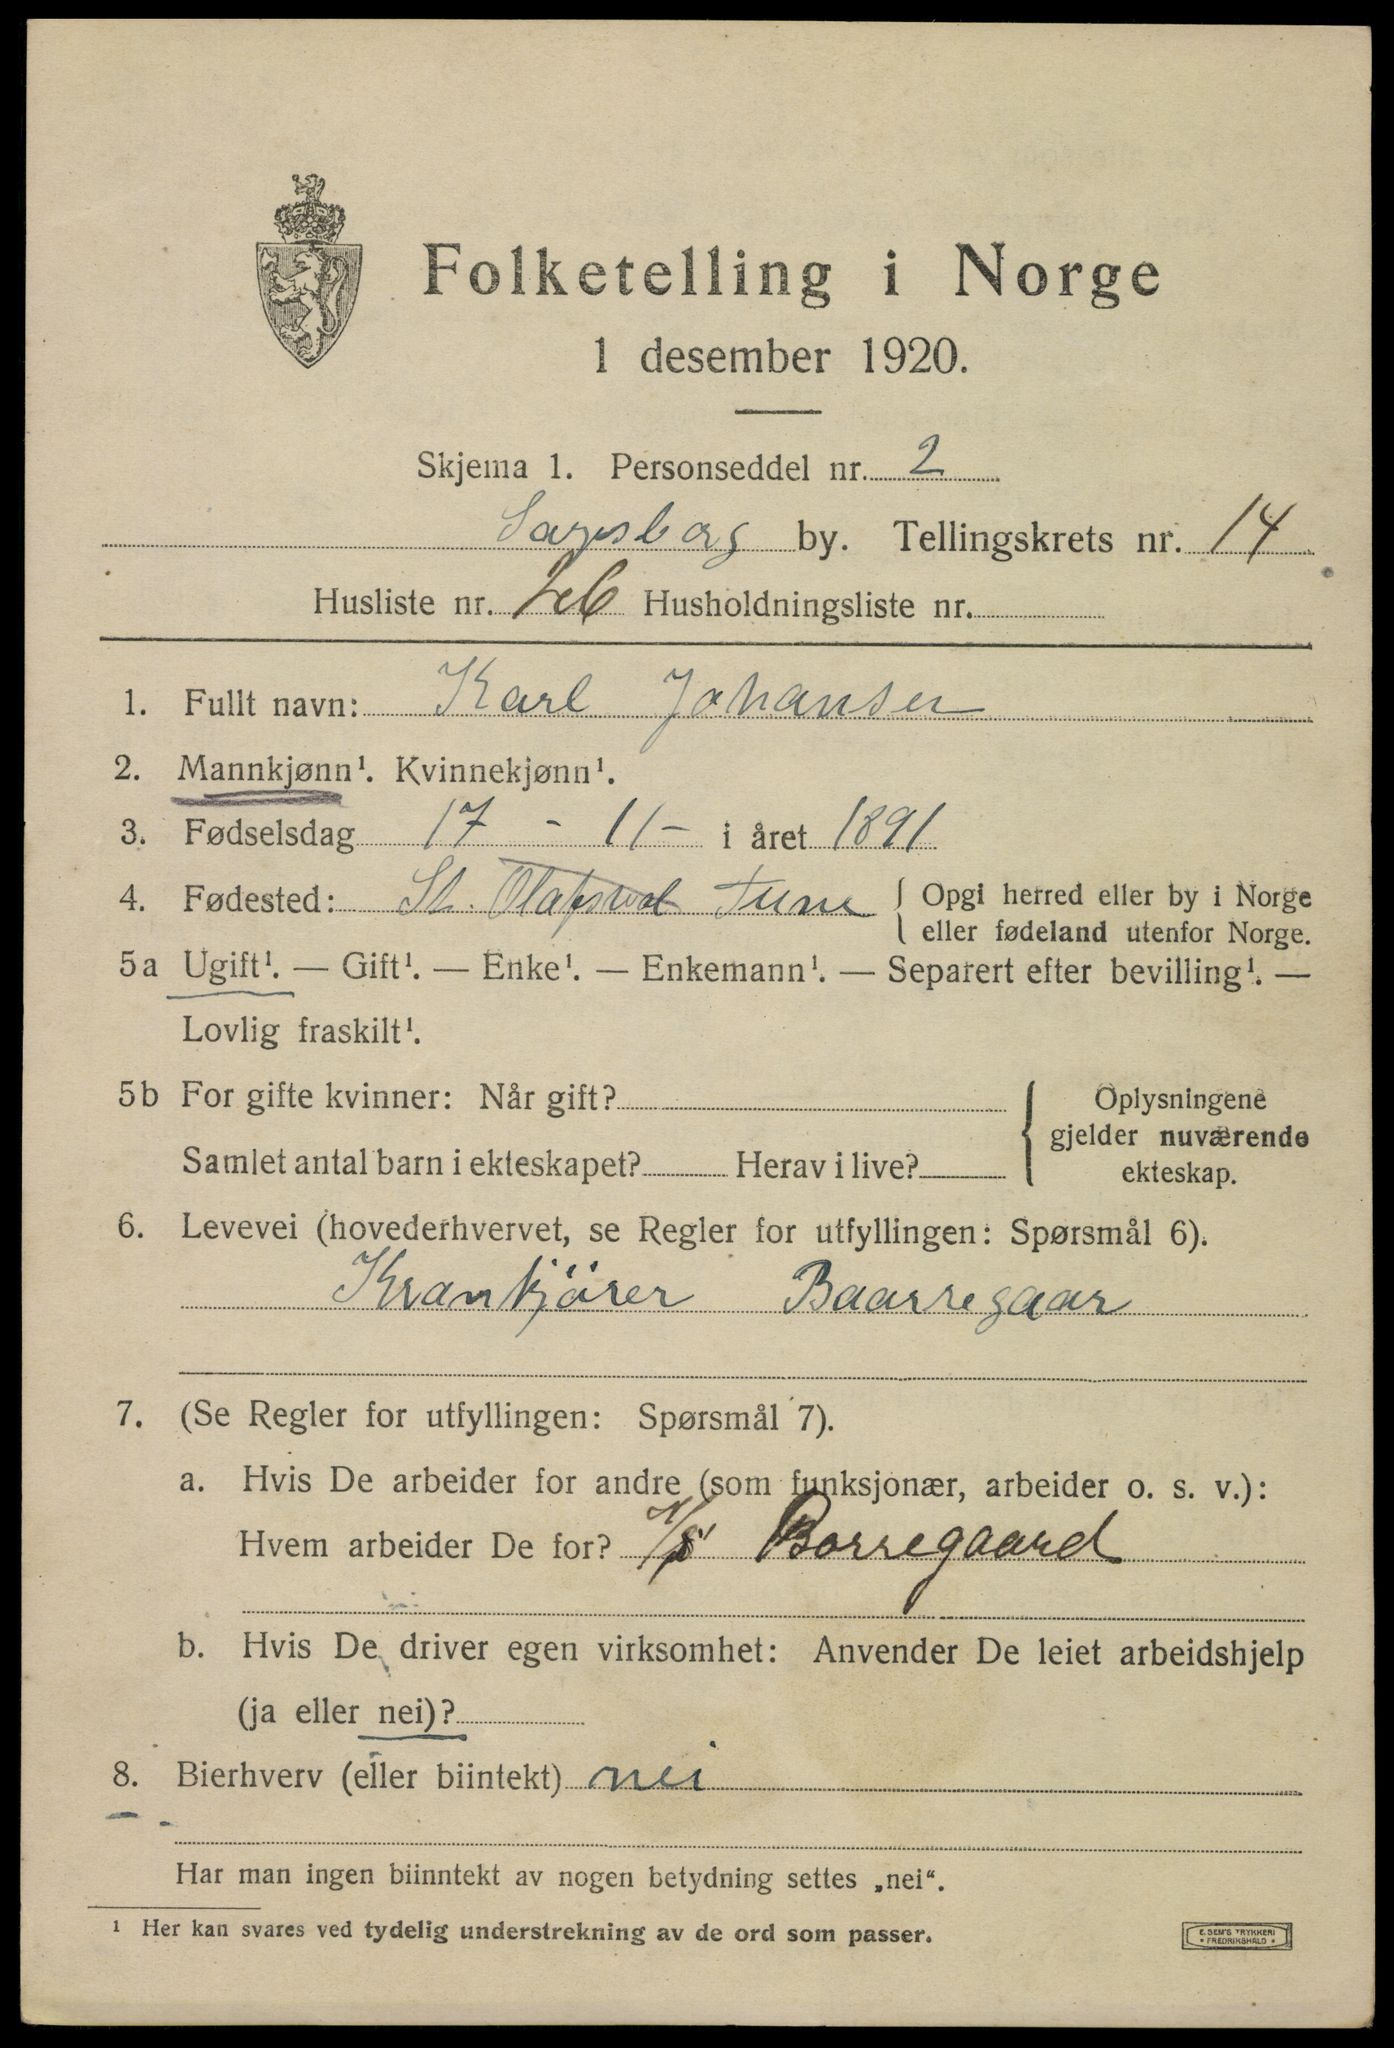 Folketelling i Norge
1 desember 1920.
Skjema 1. Personseddel nr. 2
Sarpsborg by. Tellingskrets nr. 14
Husliste nr. 26 Husholdningsliste nr.
1. Fullt navn: Karl Johansen
2. Mannkjønn¹. Kvinnekjønn¹.
3. Fødselsdag 17 - 11 - i året 1891
4. Fødested: St. Olafsvol Tune { Opgi herred eller by i Norge
eller fødeland utenfor Norge.
5a Ugift¹. — Gift¹. — Enke¹. — Enkemann¹. — Separert efter bevilling¹. —
Lovlig fraskilt¹.
5b For gifte kvinner: Når gift? { Oplysningene
gjelder nuværende
Samlet antal barn i ekteskapet? Herav i live? ekteskap.
6. Levevei (hovederhvervet, se Regler for utfyllingen: Spørsmål 6).
Krankjörer Baarregaar
7. (Se Regler for utfyllingen: Spørsmål 7).
a. Hvis De arbeider for andre (som funksjonær, arbeider o. s. v.):
Hvem arbeider De for? Borregaard
b. Hvis De driver egen virksomhet: Anvender De leiet arbeidshjelp
(ja eller nei)?
8. Bierhverv (eller biintekt) nei
Har man ingen biinntekt av nogen betydning settes „nei“.
¹ Her kan svares ved tydelig understrekning av de ord som passer.
E. SEM'S TRYKKERI
* FREDRIKSHALD *